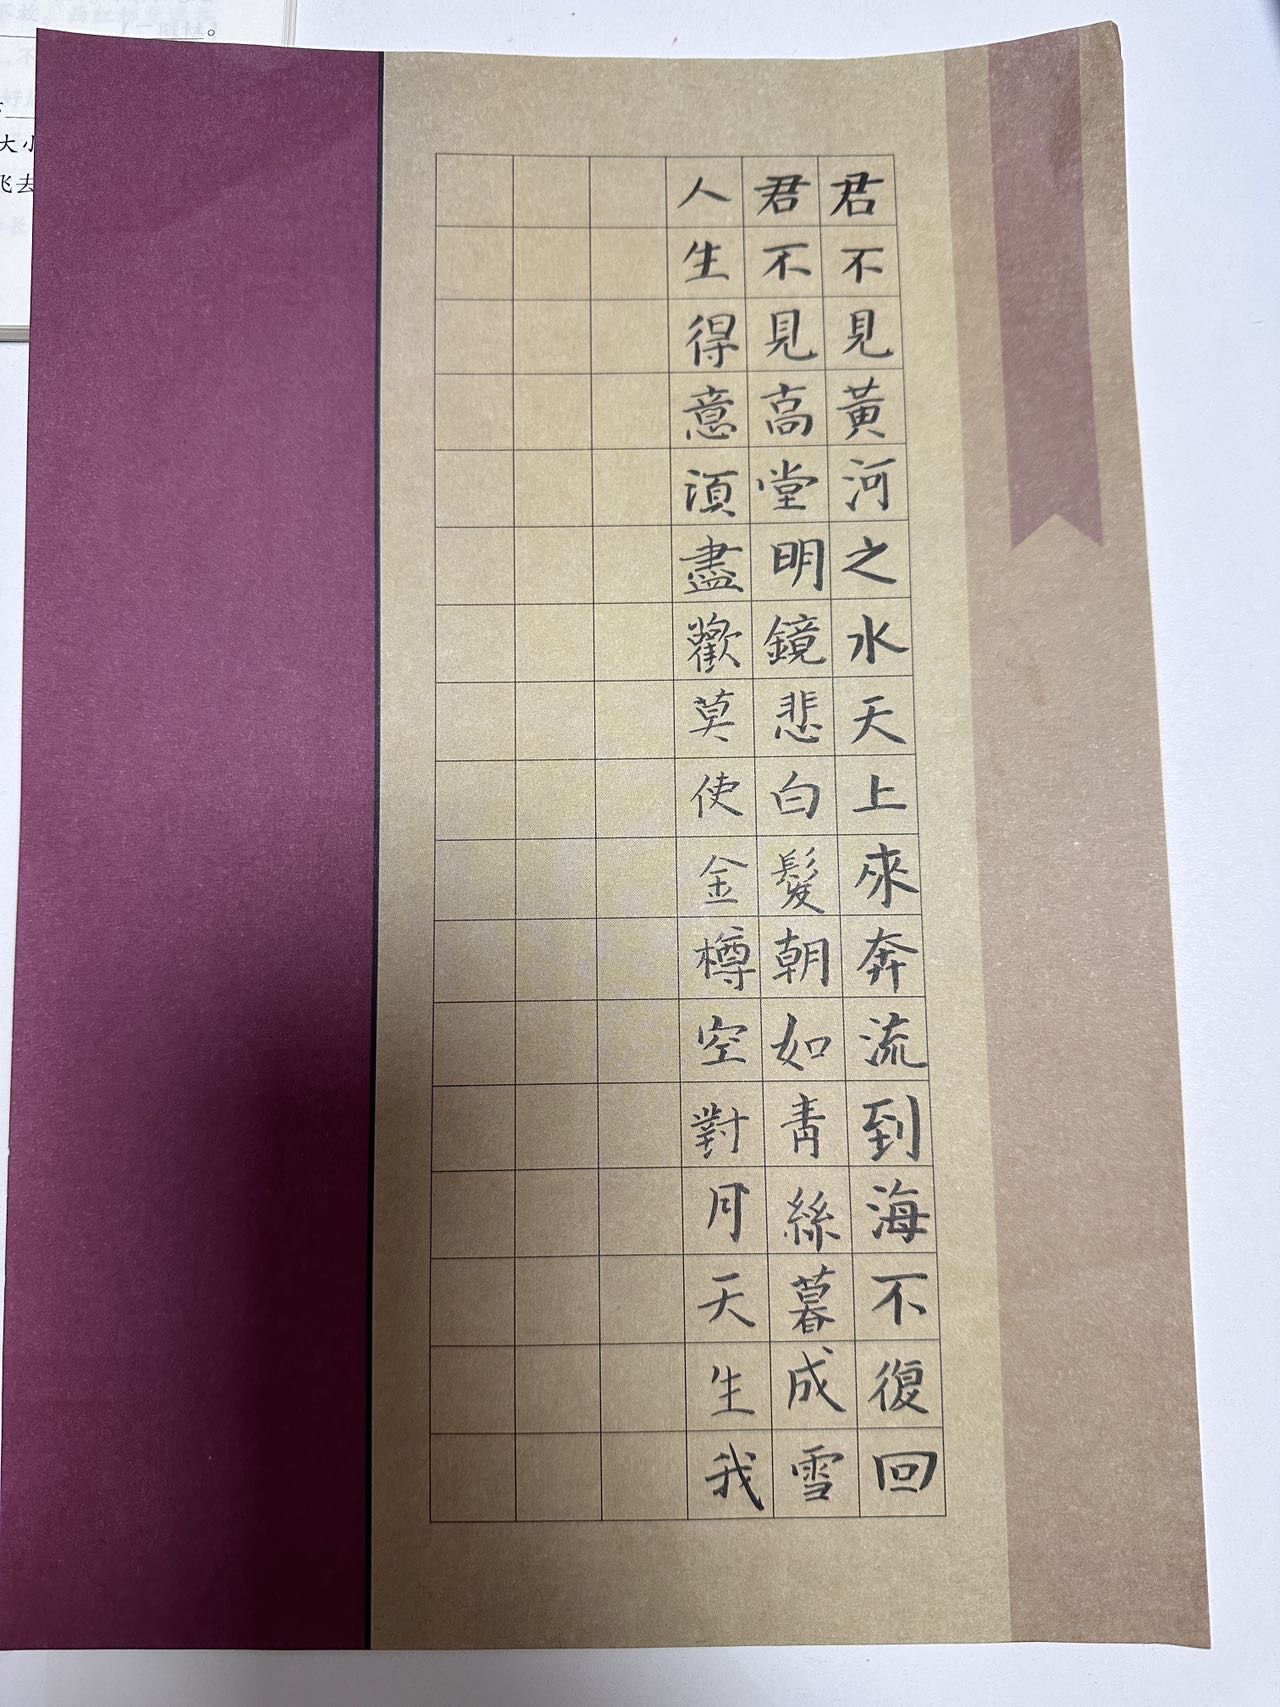 君不見黃河之水天上來奔流到海不復回
君不見高堂明鏡悲白髮朝如青絲暮成雪
人生得意須盡歡莫使金樽空對月天生我
大小
飞去